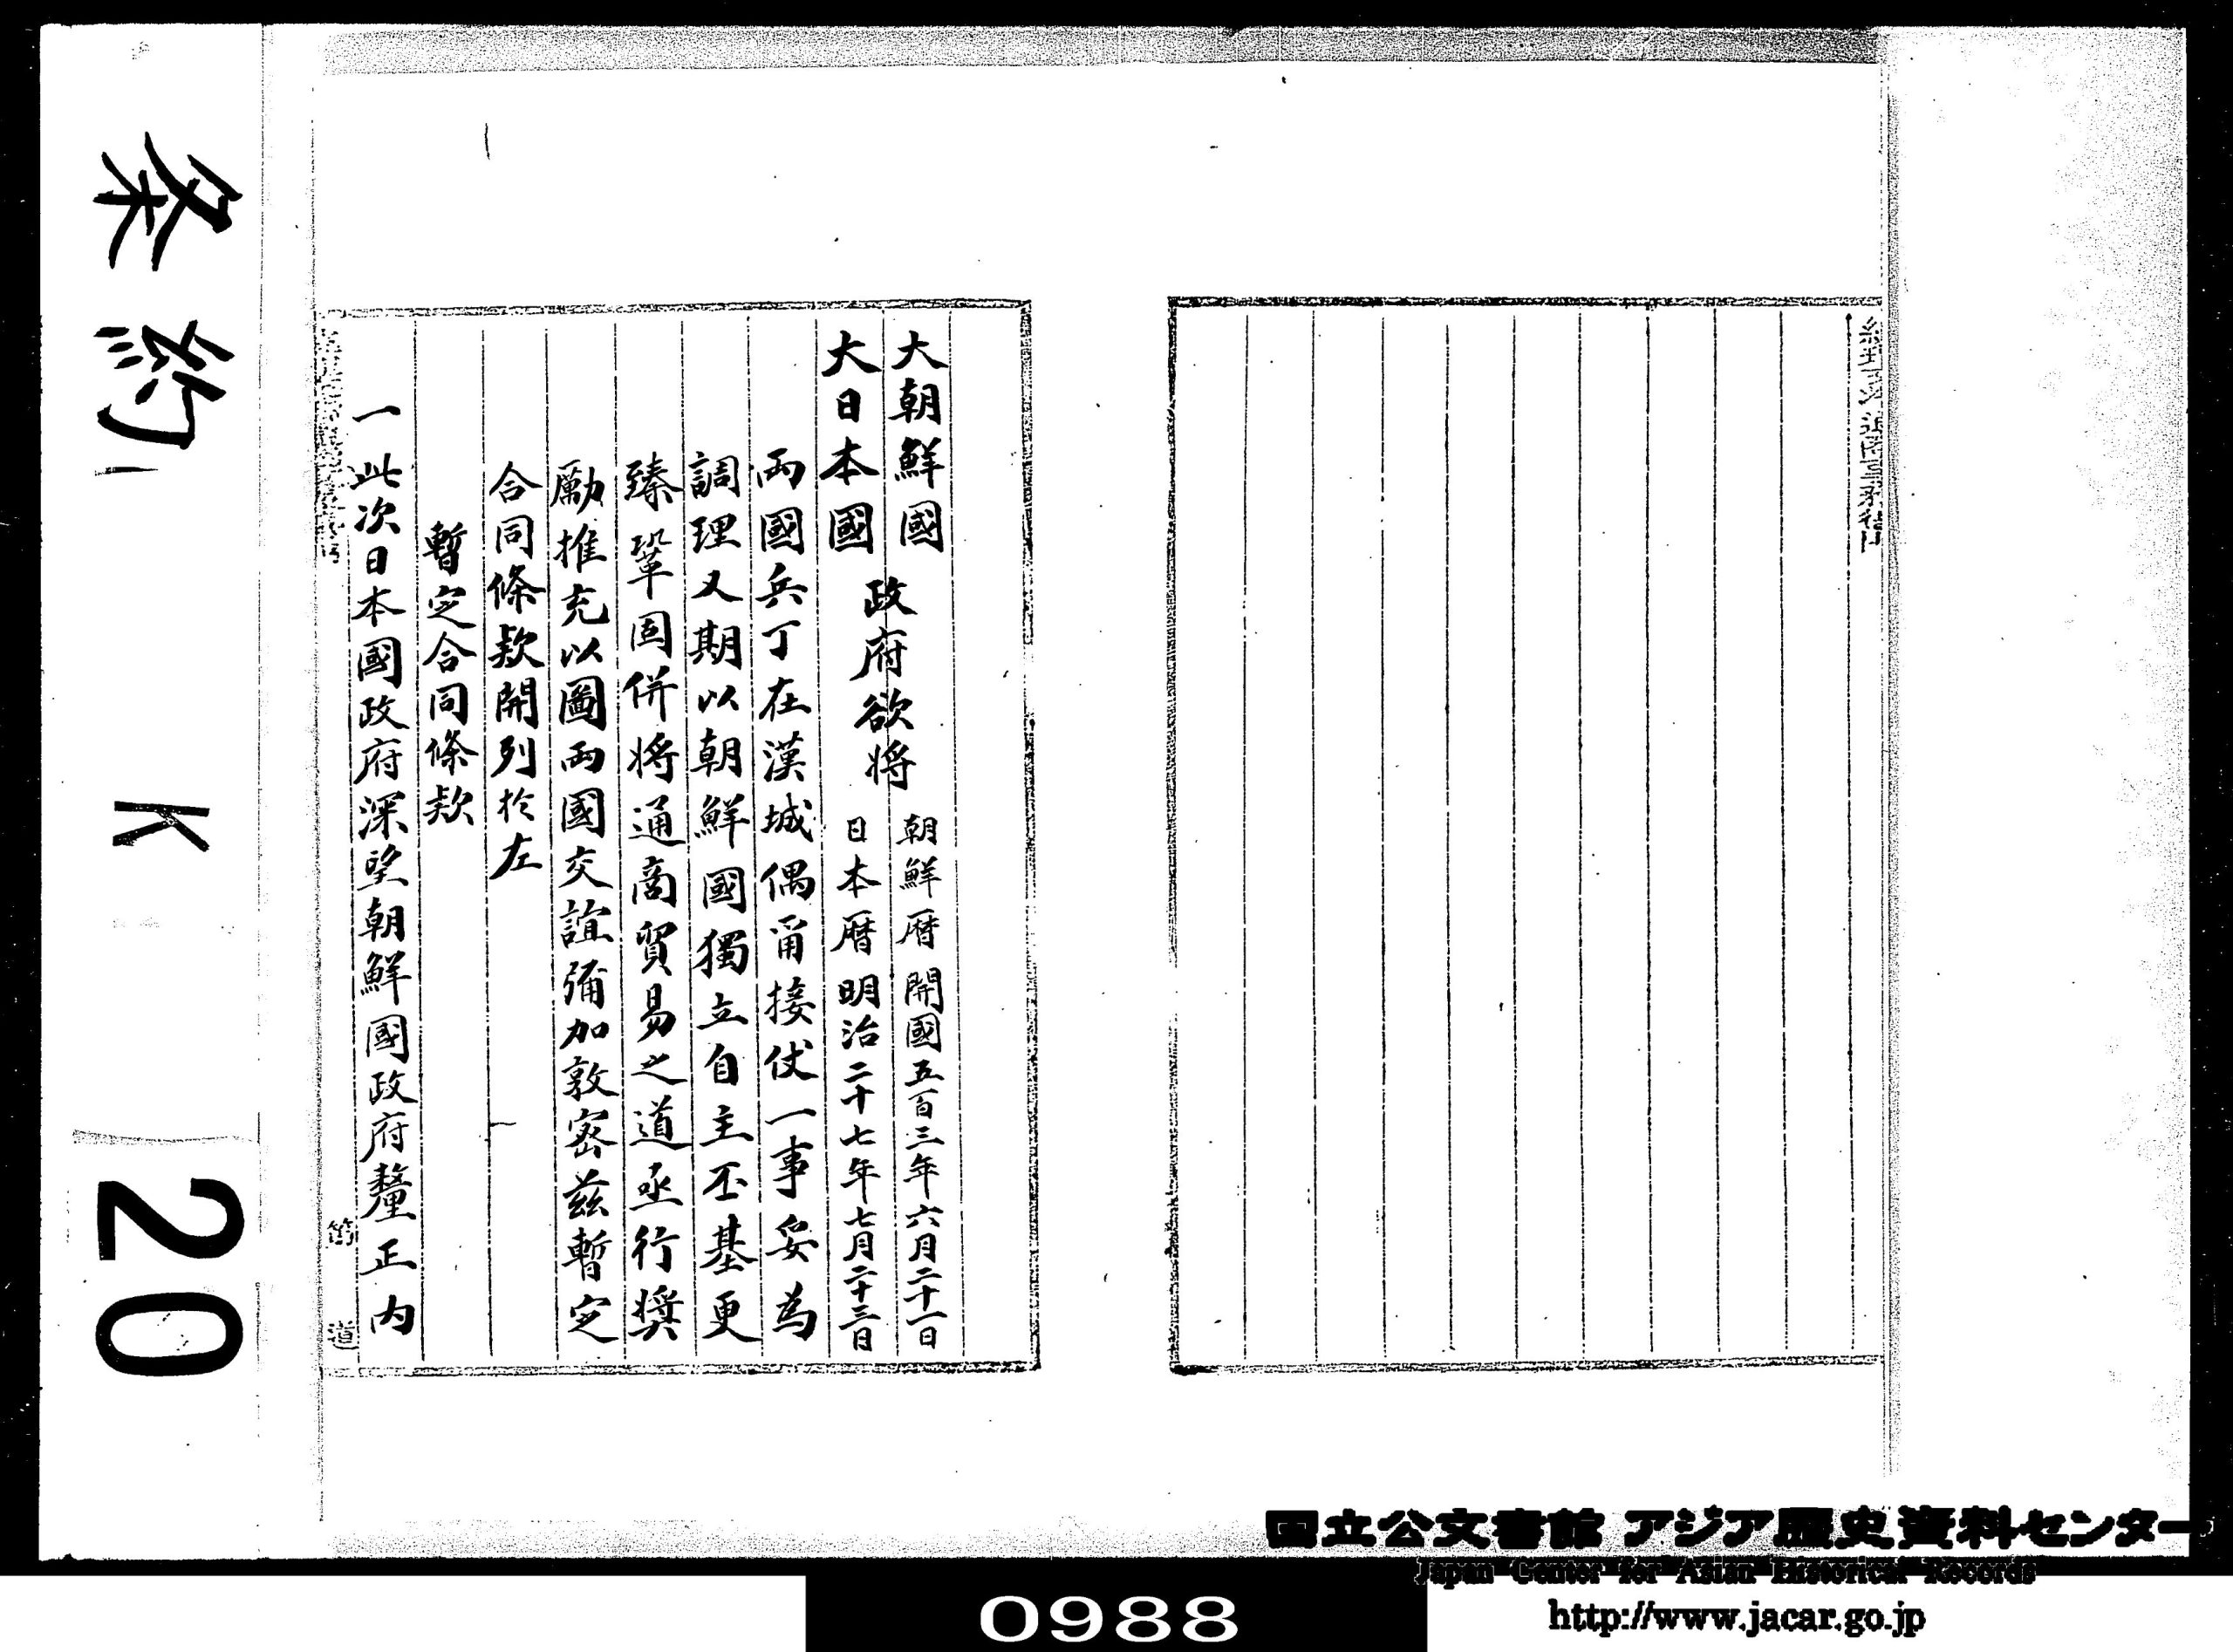 大朝鮮國
大日本國
政府欲将
朝鮮暦開國五百三年六月二十一日
日本暦明治二十七年七月二十三日
兩國兵丁在漢城偶爾接仗一事妥為
調理又期以朝鮮國獨立自主丕基更
臻鞏固併将通商貿易之道亟行奬
勵推充以圖兩國交誼彌加敦密茲暫定
合同條款開列於左
暫定合同條款
一此次日本國政府深望朝鮮國政府釐正内
条約
K
20
国立公文書館 アジア歴史資料センター
Japan Center for Asian Historical Records
http://www.jacar.go.jp
0988